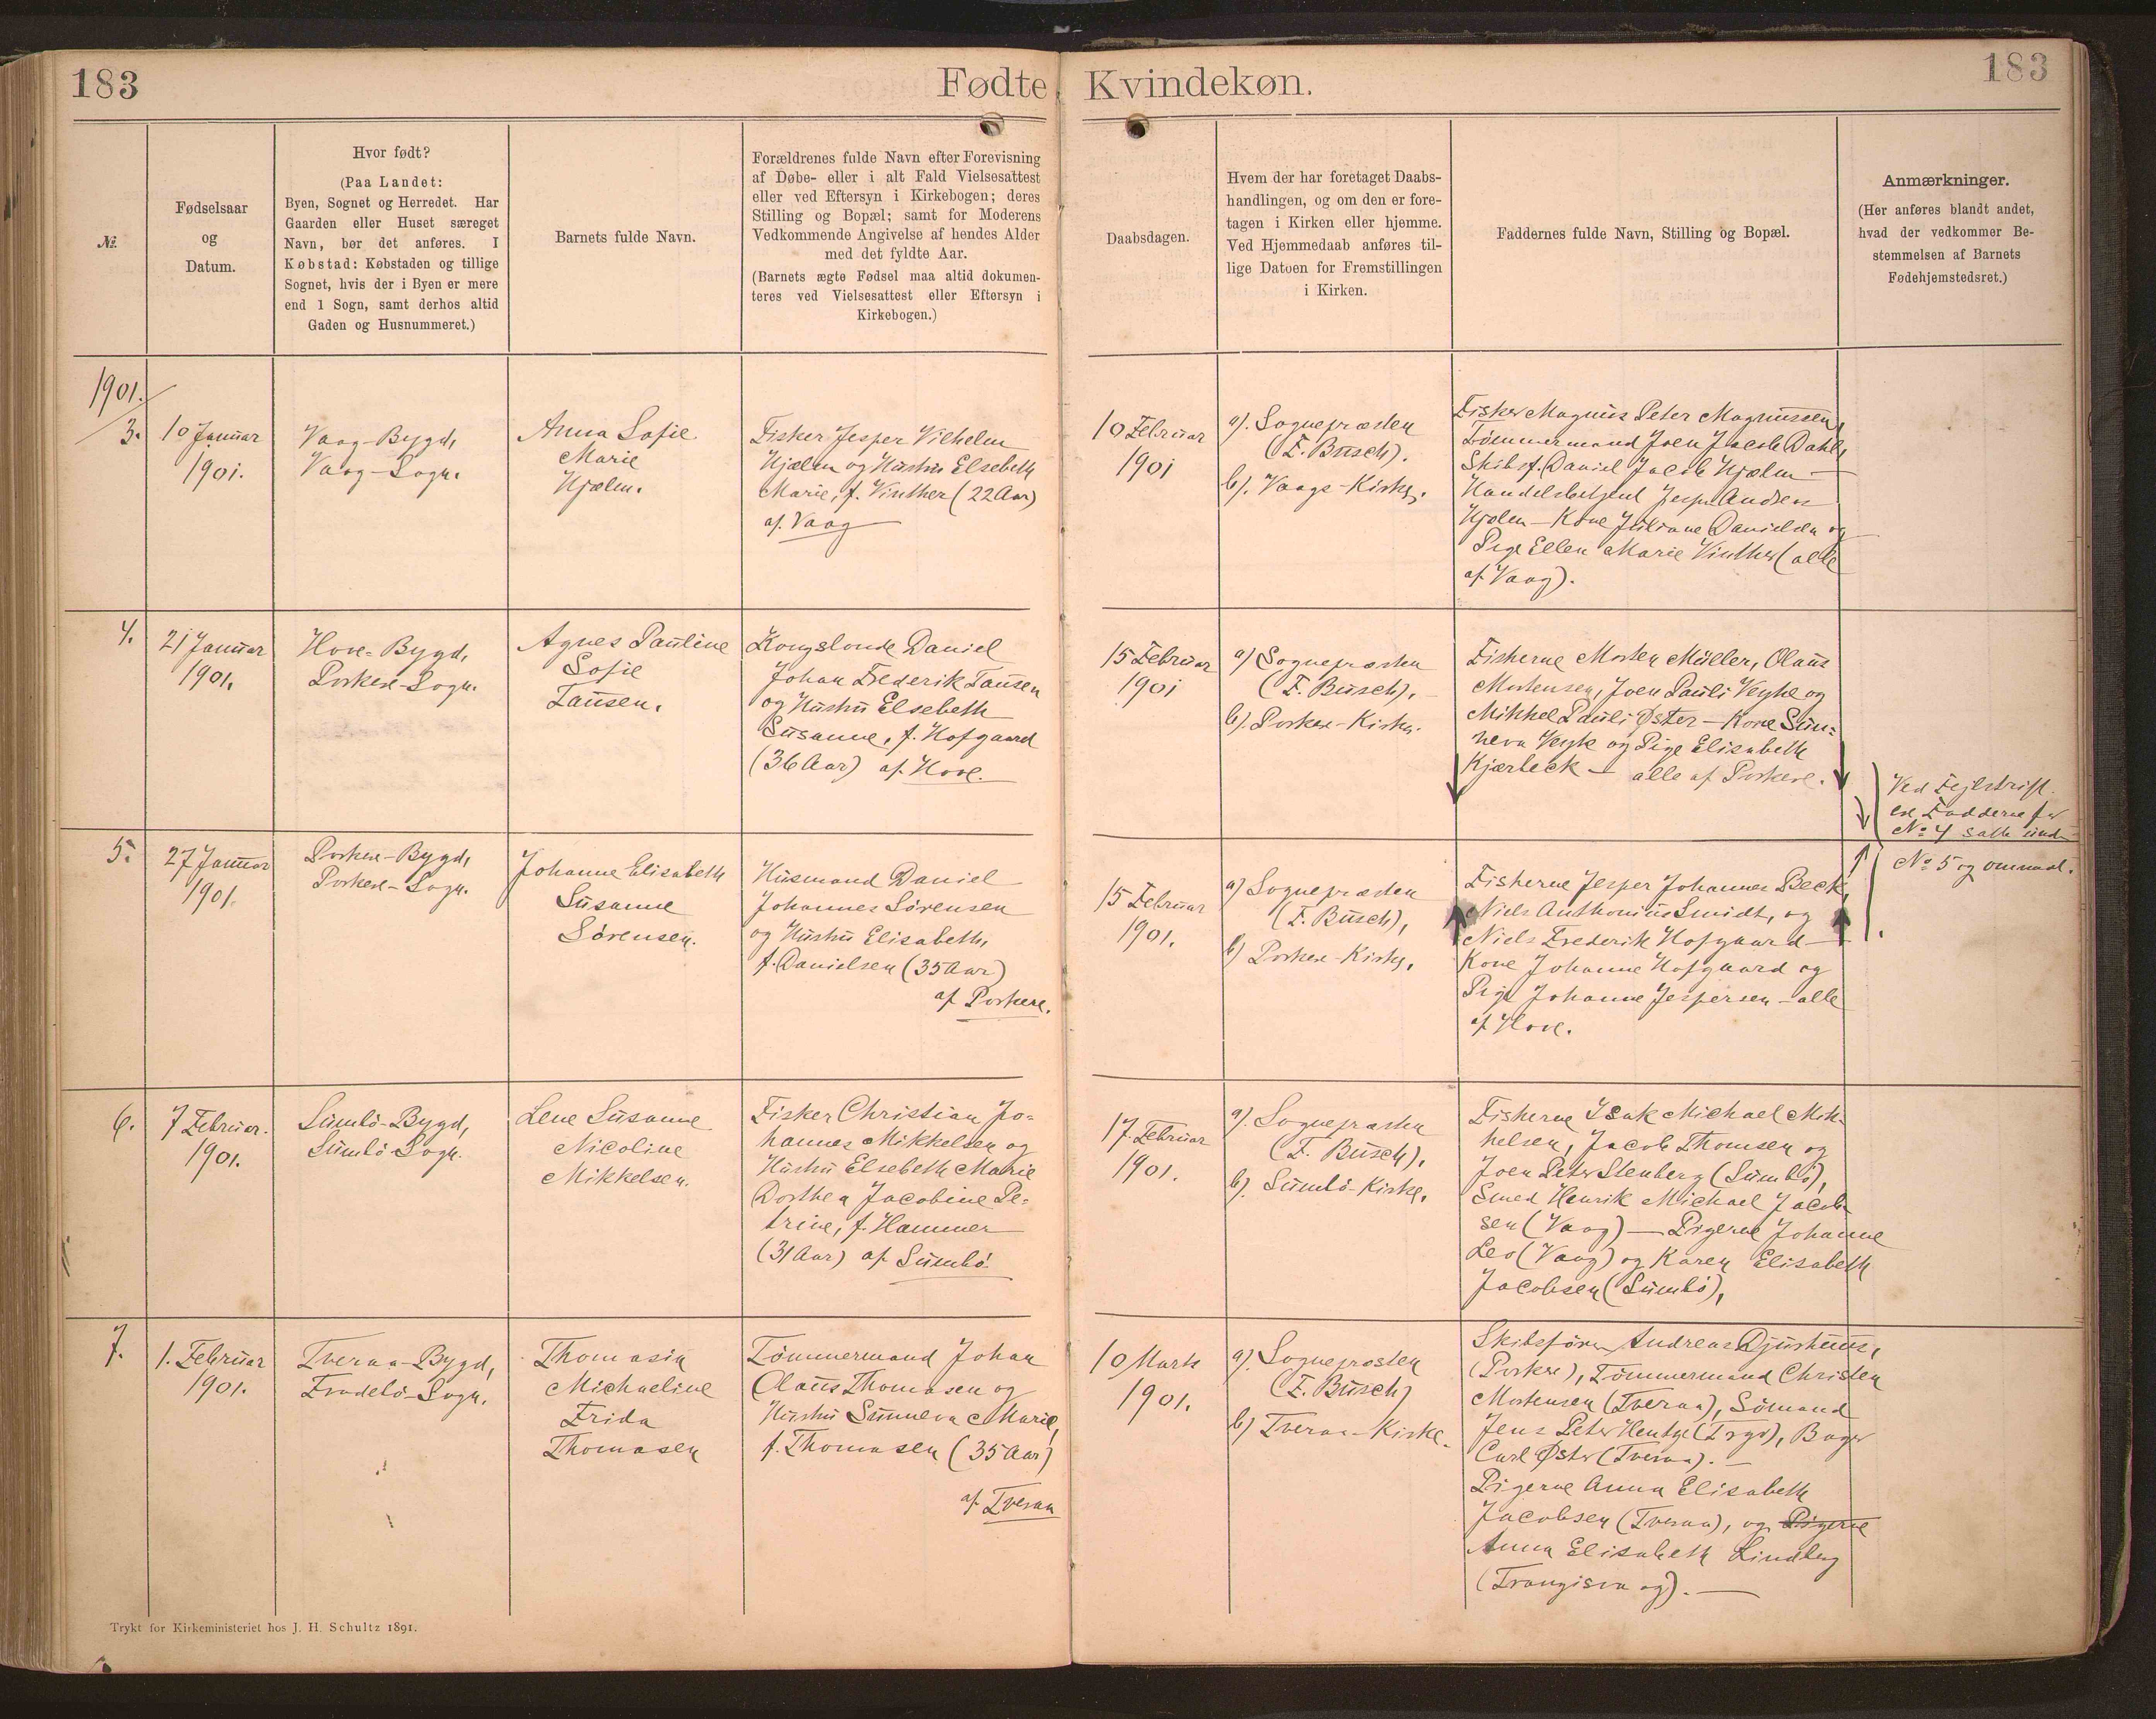 183
Fødte
Kvindekøn.
183
№
Fødselsaar
og
Datum.
Hvor født?
(Paa Landet:
Byen, Sognet og Herredet. Har
Gaarden eller Huset særeget
Navn, bør det anføres. I
Købstad: Købstaden og tillige
Sognet, hvis der i Byen er mere
end 1 Sogn, samt derhos altid
Gaden og Husnummeret.)
Barnets fulde Navn.
Forældrenes fulde Navn efter Forevisning
af Døbe- eller i alt Fald Vielsesattest
eller ved Eftersyn i Kirkebogen; deres
Stilling og Bopæl; samt for Moderens
Vedkommende Angivelse af hendes Alder
med det fyldte Aar.
(Barnets ægte Fødsel maa altid dokumen-
teres ved Vielsesattest eller Eftersyn i
Kirkebogen.)
Daabsdagen.
Hvem der har foretaget Daabs-
handlingen, og om den er fore-
tagen i Kirken eller hjemme.
Ved Hjemmedaab anføres til-
lige Datoen for Fremstillingen
i Kirken.
Faddernes fulde Navn, Stilling og Bopæl.
Anmærkninger.
(Her anføres blandt andet,
hvad der vedkommer Be-
stemmelsen af Barnets
Fødehjemstedsret.)
1901.
3.
10 Januar
1901.
Vaag-Bygd,
Vaag-Sogn.
Anna Sofie
Marie
Hjælm.
Fisker Jesper Vilhelm
Hjælm og Hustru Elsebeth
Marie, f. Vinther (22 Aar)
af Vaag
10 Februar
1901
a). Sognepræsten
(F. Busch).
b). Vaags-Kirke.
Fisker Magnus Peter Magnussen,
Tømmermand Joen Jacob Dahl,
Skibsf. Daniel Jacob Hjælm —
Handelsbetjent Jesper Andreas
Hjælm — Kone Juliane Danielsen og
Pige Ellen Marie Vinther (alle
af Vaag).
4.
21 Januar
1901.
Hove-Bygd,
Porkere-Sogn.
Agnes Pauline
Sofie
Tausen.
Kongsbonde Daniel
Johan Frederik Tausen
og Hustru Elsebeth
Susanne, f. Hofgaard
(36 Aar) af Hove.
15 Februar
1901
a) Sognepræsten
(F. Busch).
b). Porkere-Kirke.
Fiskerne Morten Müller, Olaus
Mortensen, Joen Pauli Veyhe og
Mikkel Pauli Øster — Kone Sun-
neva Veyhe og Pige Elisabeth
Kjærbeck — alle af Porkere.
Ved Fejlskrift
ere Fadderne for
No 4 satte under
No 5 og omvendt.
5.
27 Januar
1901.
Porkere-Bygd,
Porkere-Sogn.
Johanne Elisabeth
Susanne
Sørensen.
Husmand Daniel
Johannes Sørensen
og Hustru Elisabeth,
f. Danielsen (35 Aar)
af Porkere.
15 Februar
1901.
a) Sognepræsten
(F. Busch),
b) Porkere-Kirke.
Fiskerne Jesper Johannes Beck,
Niels Anthonius Smidt, og
Niels Frederik Hofgaard —
Kone Johanne Hofgaard og
Pige Johanne Jespersen — alle
af Hove.
6.
7 Februar
1901.
Sumbö-Bygd,
Sumbö-Sogn.
Lene Susanne
Nicoline
Mikkelsen.
Fisker Christian Jo-
hannes Mikkelsen og
Hustru Elsebeth Marie
Dorthea Jacobine Pe-
trine, f. Hammer
(31 Aar) af Sumbö.
17. Februar
1901.
a). Sognepræsten
(F. Busch),
b). Sumbö-Kirke.
Fiskerne Isak Michael Mik-
kelsen, Jacob Thomsen og
Joen Peter Stenberg (Sumbö),
Smed Henrik Michael Jacob-
sen (Vaag) — Pigerne Johanne
Leo (Vaag) og Karen Elisabeth
Jacobsen (Sumbö),
7.
1. Februar
1901.
Tveraa-Bygd,
Frodebö-Sogn.
Thomasia
Michaeline
Frida
Thomasen
Tömmermand Johan
Olaus Thomasen og
Hustru Sunneva Marie,
f. Thomasen (35 Aar)
af Tveraa
10 Marts
1901.
a). Sognepræsten
(F. Busch)
b) Tveraa-Kirke.
Skibsfører Andreas Djurhuus,
(Porkere), Tömmermand Christen
Mortensen (Tveraa), Sömand
Jens Peter Hentze, Bager
Carl Øster (Tveraa). —
Pigerne Anna Elisabeth
Jacobsen (Tveraa), og Pigerne
Anna Elisabeth Lindberg
(Trangisvaag). —
Trykt for Kirkeministeriet hos J. H. Schultz 1891.